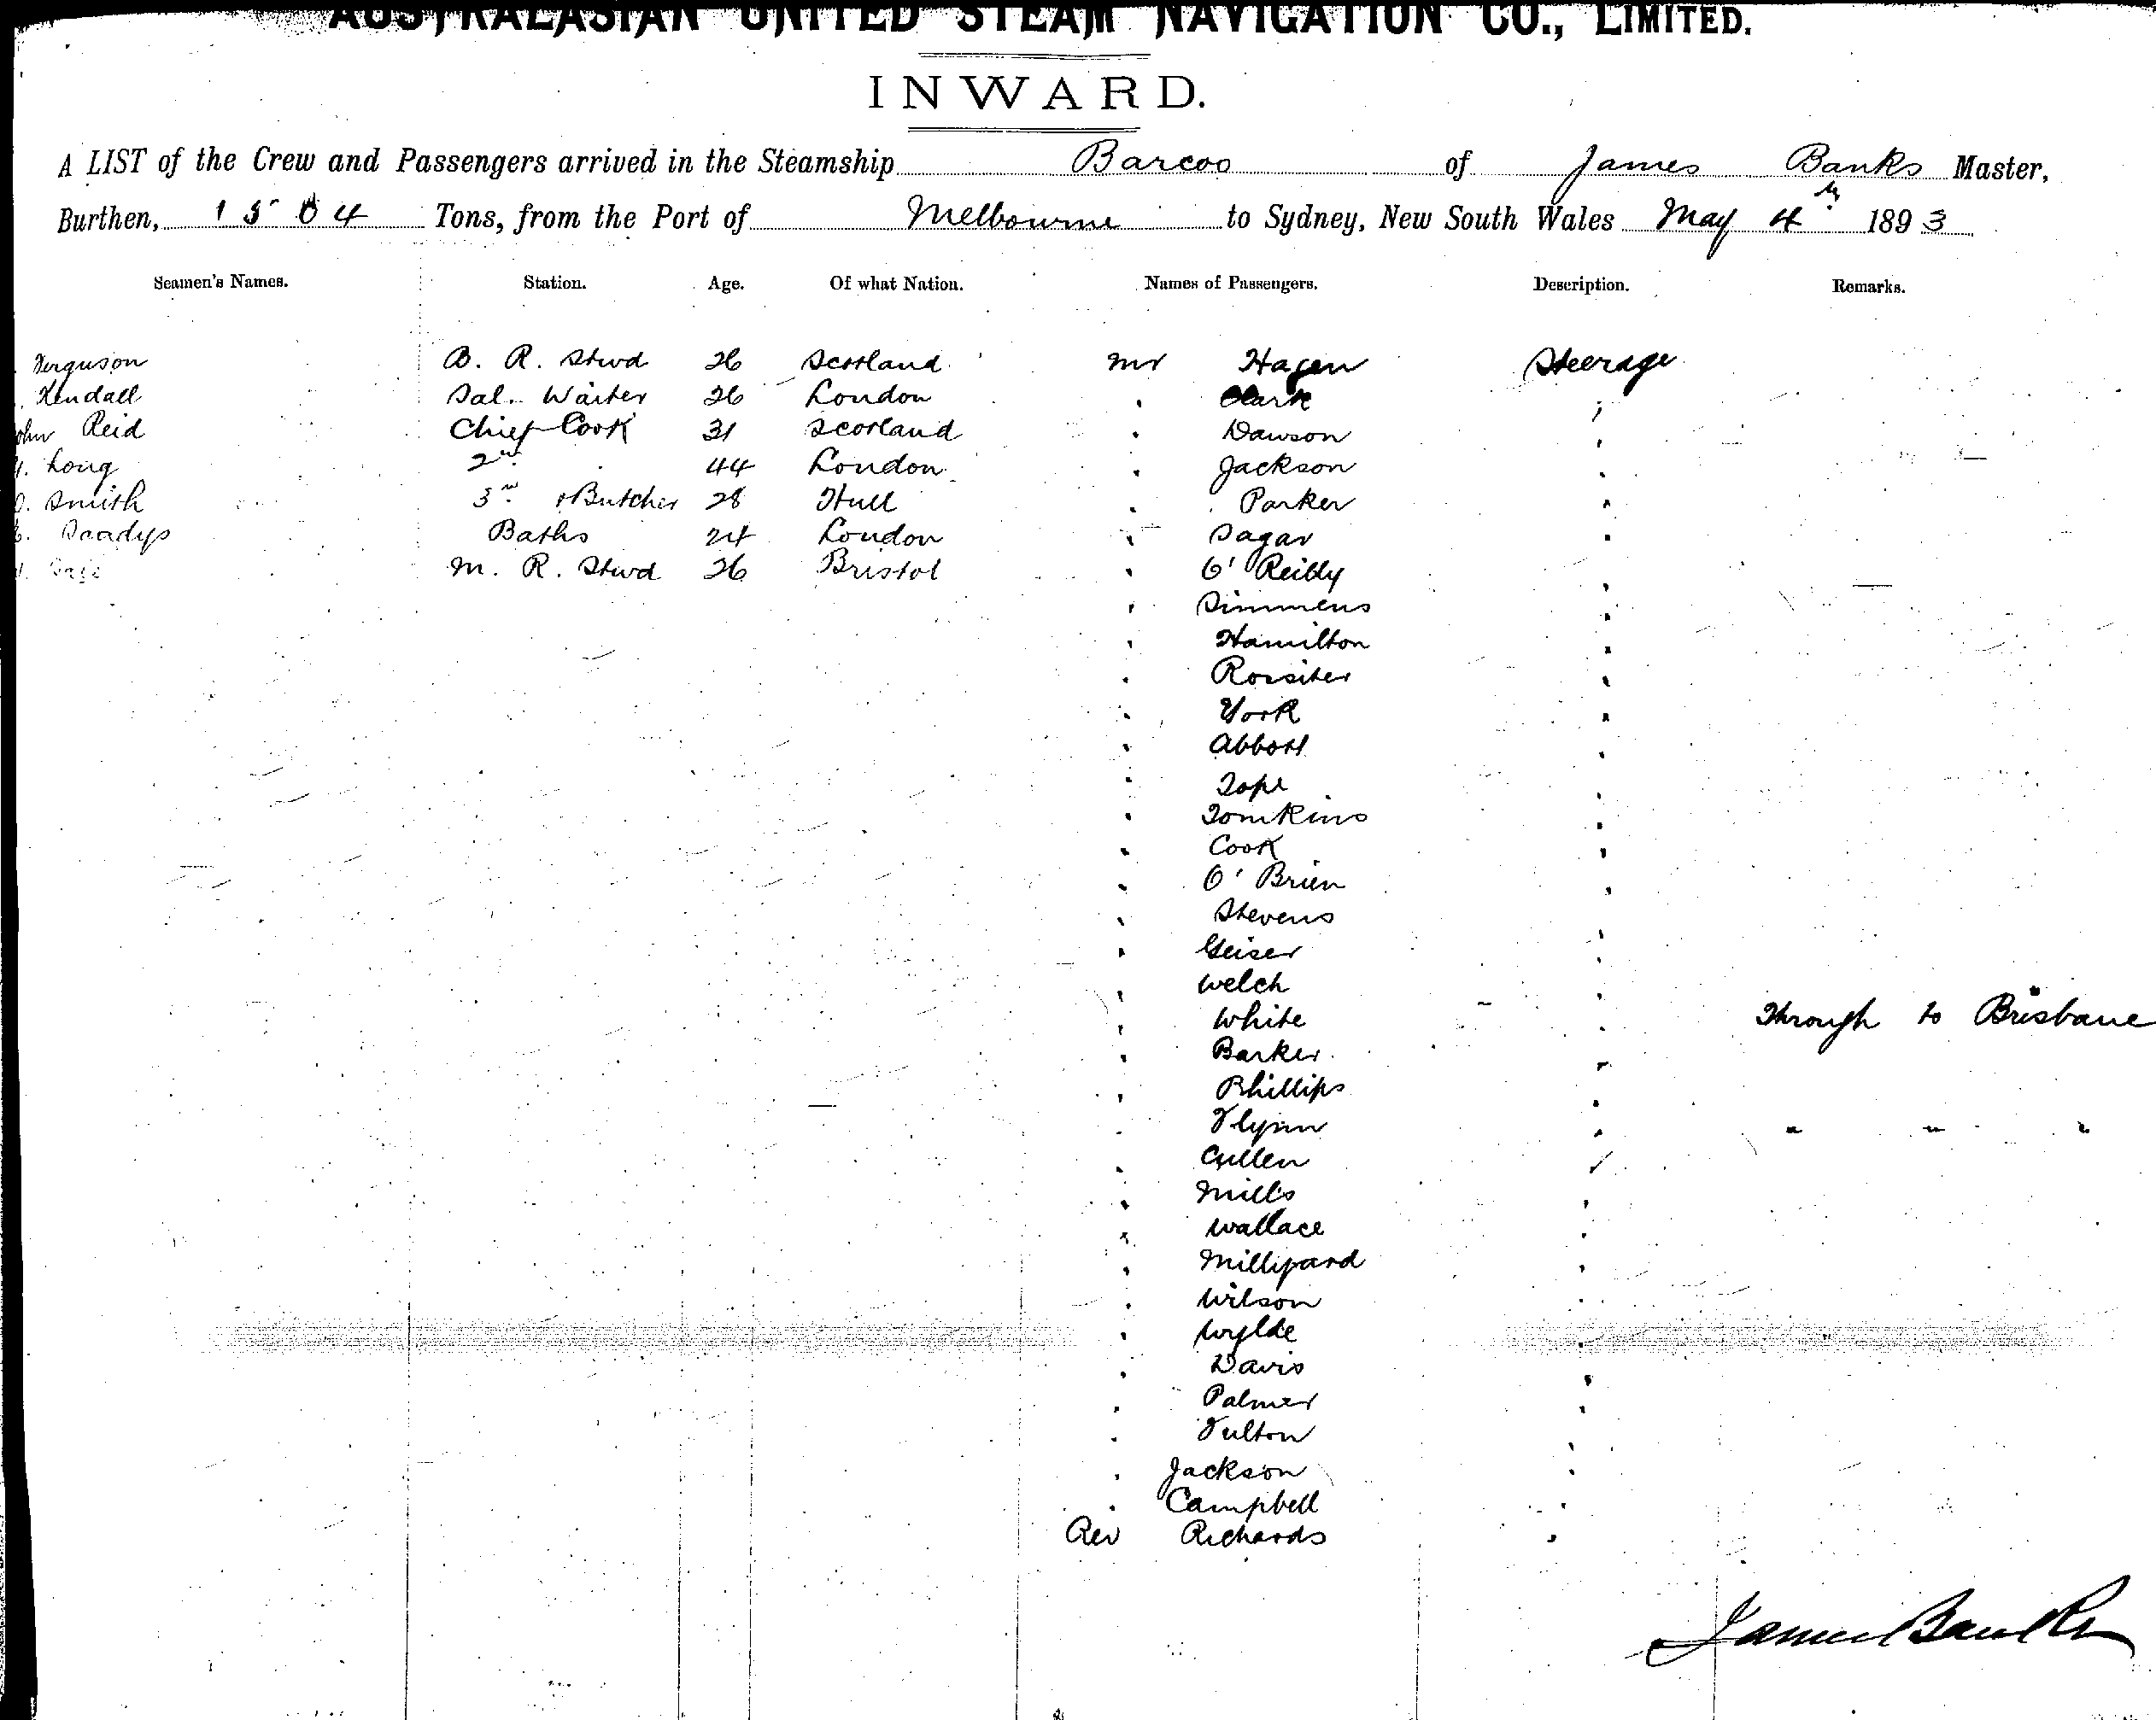 AUSTRALASIAN UNITED STEAM NAVIGATION CO., LIMITED.
INWARD.
A LIST of the Crew and Passengers arrived in the Steamship Barcoo of James Banks Master,
Burthen, 1504 Tons, from the Port of Melbourne to Sydney, New South Wales May 4th 1893
Seamen's Names. Station. Age. Of what Nation. Names of Passengers. Description. Remarks.
Ferguson B. R. Stwd 26 Scotland Mr Hagen Steerage
Kendall Sal. Waiter 26 London " Clark "
John Reid Chief Cook 31 Scotland " Dawson "
Long 2nd " 44 London " Jackson "
Smith 3rd & Butcher 28 Hull " Parker "
Baths 24 London " Sagar "
M. R. Stwd 26 Bristol " O'Reilly "
" Simmens "
" Hamilton "
" Rossiter "
" York "
" Abbott "
" Tope "
" Tomkins "
" Cook "
" O'Brien "
" Stevens "
" Geiser "
" Welch "
" White " Through to Brisbane
" Barker "
" Phillips "
" Flynn " " " "
" Cullen "
" Mills "
" Wallace "
" Millipard "
" Wilson "
" Wylde "
" Davis "
" Palmer "
" Fulton "
" Jackson "
" Campbell "
Rev Richards "
James Banks